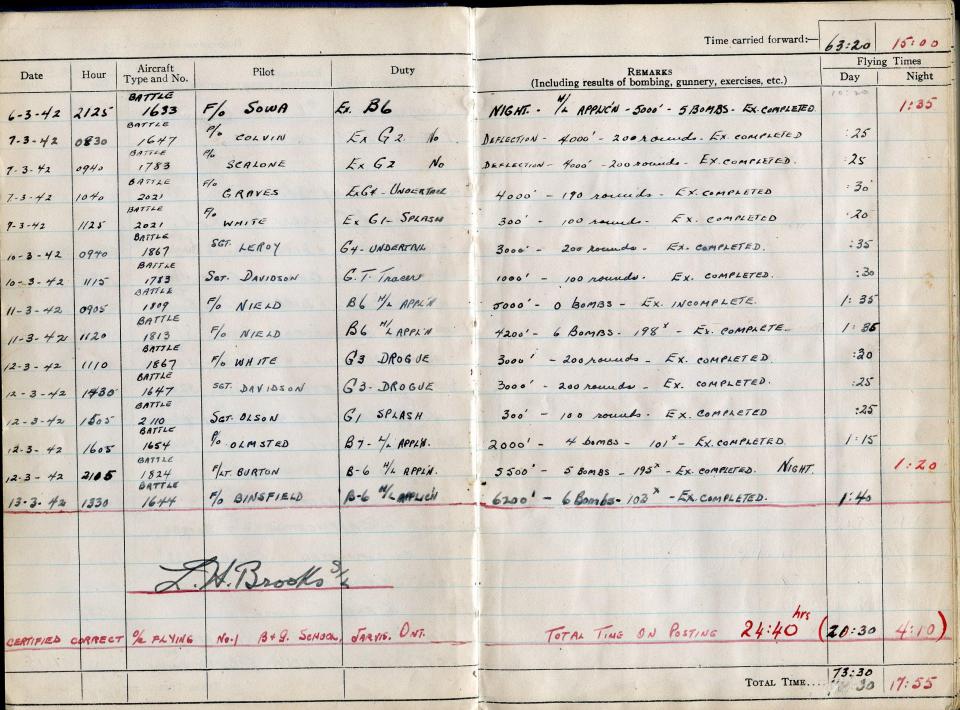 Time carried forward:— 63:20 15:00
Date Hour Aircraft Type and No. Pilot Duty REMARKS (Including results of bombing, gunnery, exercises, etc.) Flying Times Day Night
6-3-42 2125 BATTLE 1633 F/O SOWA Ex. B6 NIGHT - H/L APPLIC'N - 5000' - 5 BOMBS - EX. COMPLETED 1:35
7-3-42 0830 BATTLE 1647 P/O COLVIN Ex G2 No DEFLECTION - 4000' - 200 rounds - EX. COMPLETED :25
7-3-42 0940 BATTLE 1783 P/O SCALONE Ex G2 No DEFLECTION - 4000' - 200 rounds - EX. COMPLETED. :25
7-3-42 1040 BATTLE 2021 F/O GRAVES Ex G4 - UNDERTAIL 4000' - 190 rounds - EX. COMPLETED :30
9-3-42 1125 BATTLE 2021 F/O WHITE Ex G1 - SPLASH 300' - 100 rounds - EX. COMPLETED :20
10-3-42 0940 BATTLE 1867 SGT. LEROY G4 - UNDERTAIL 3000' - 200 rounds - EX. COMPLETED. :35
10-3-42 1115 BATTLE 1783 SGT. DAVIDSON G.T. Tracer 1000' - 100 rounds - EX. COMPLETED. :30
11-3-42 0905 BATTLE 1809 F/O NIELD B6 H/L APPL'N 5000' - 0 BOMBS - EX. INCOMPLETE. 1:35
11-3-42 1120 BATTLE 1813 F/O NIELD B6 H/L APPL'N 4200' - 6 BOMBS - 198ˣ - EX. COMPLETE 1:35
12-3-42 1110 BATTLE 1867 F/O WHITE G3 DROGUE 3000' - 200 rounds - EX. COMPLETED :20
12-3-42 1430 BATTLE 1647 SGT. DAVIDSON G3 - DROGUE 3000' - 200 rounds - EX. COMPLETED. :25
12-3-42 1505 BATTLE 2110 SGT. OLSON G1 SPLASH 300' - 100 rounds - EX. COMPLETED :25
12-3-42 1605 BATTLE 1654 P/O OLMSTED B7 - H/L APPL'N. 2000' - 4 bombs - 101ˣ - EX. COMPLETED 1:15
12-3-42 2105 BATTLE 1824 F/LT BURTON B-6 H/L APPL'N. 5500' - 5 BOMBS - 195ˣ - EX. COMPLETED. NIGHT. 1:20
13-3-42 1330 BATTLE 1644 F/O BINSFIELD B-6 H/L APPLIC'N 6200' - 6 BOMBS - 103ˣ - EX. COMPLETED. 1:40
L.H. Brooks S/L
CERTIFIED CORRECT O/C FLYING No.1 B & G. SCHOOL, JARVIS. ONT. TOTAL TIME ON POSTING 24:40 hrs (20:30 4:10)
73:30
TOTAL TIME.... 17:55